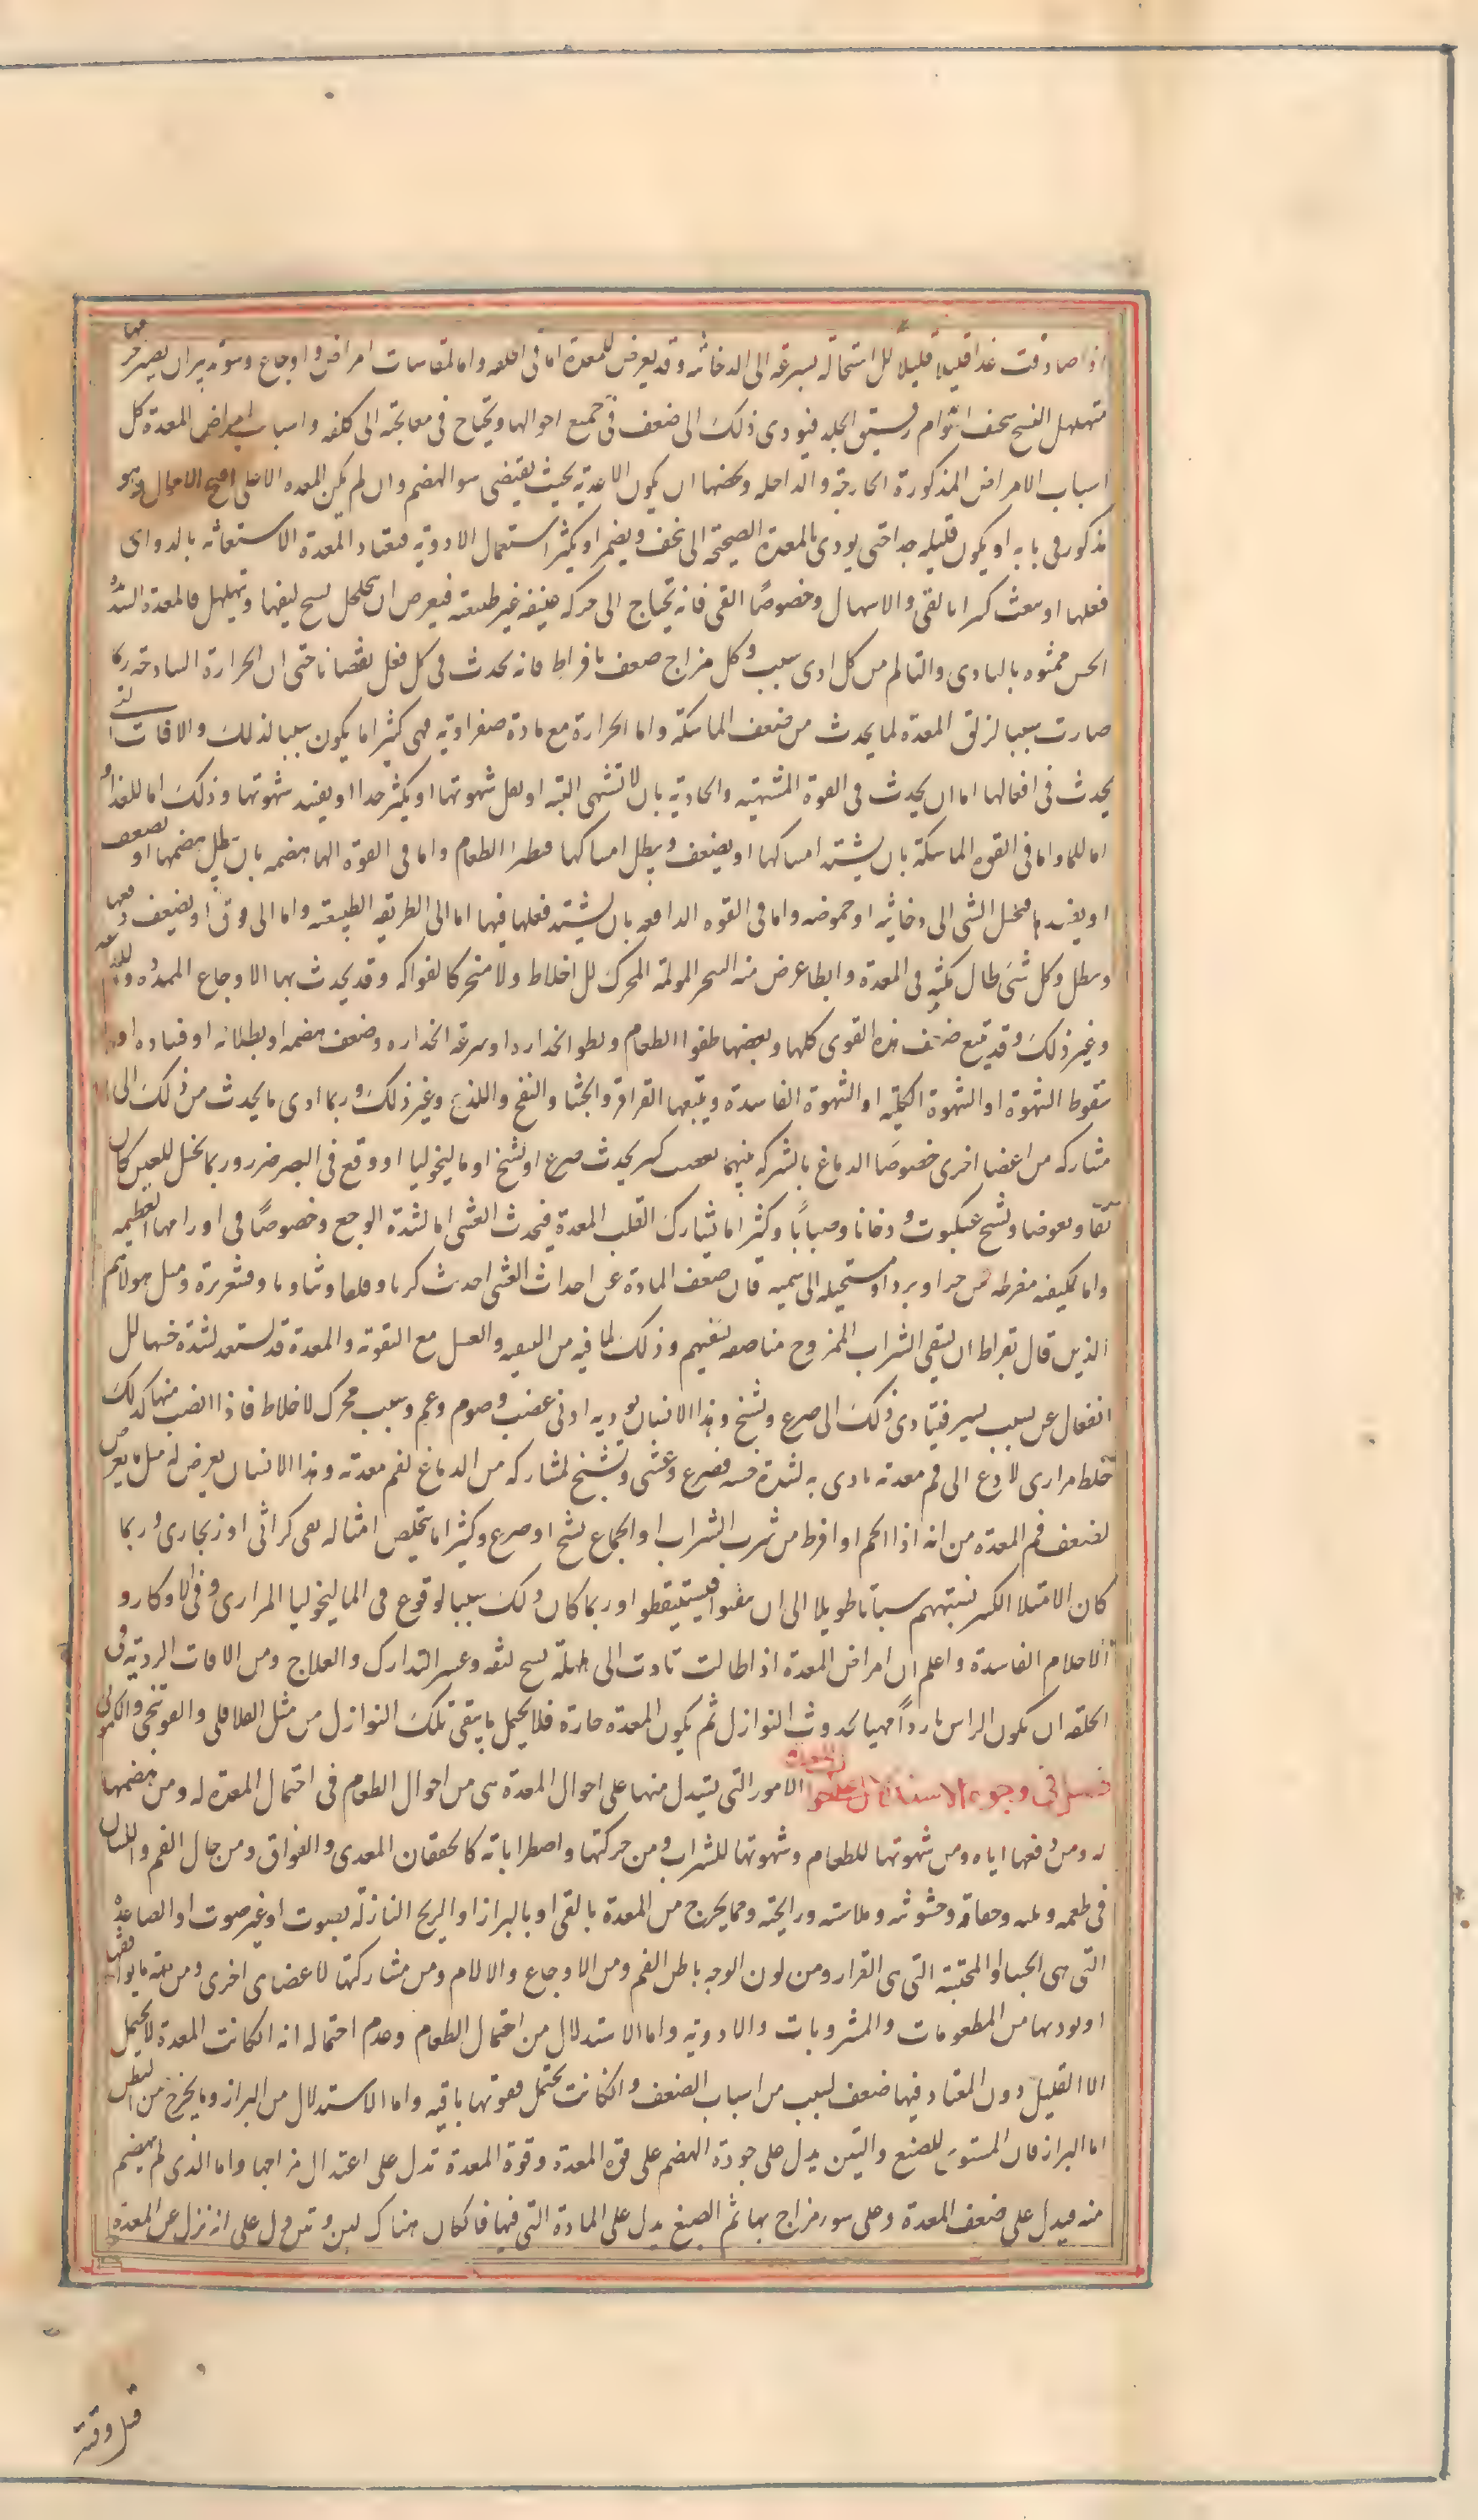 اذا صادفت غذا قليلا قليلا للاستحالة بسرعة الى الدخانية وقد يعرض للمعدة اما فى الخلقه واما لمقاسات امراض واوجاع وسوء تدبير ان يصير جرمها
متهلهل النسج سخيف القوام رقيق الجلد فيودى ذلك الى ضعف فى جميع احوالها ويحتاج فى معالجته الى كلفه واسباب امراض المعدة كل
اسباب الامراض المذكورة الخارجة والداخله ويخصها ان يكون الاغدية بحيث يقتضى سو الهضم وان لم يكن المعده الا على اصح الاحوال وهو
مذكور فى بابه او يكون قليله جدا حتى يودى بالمعدة الصحيحة الى نحف ويضمر او يكثر استعمال الادوية فتعتاد المعدة الاستعانه بالدواى
فعلها او تتعب كثيرا بالقى والاسهال وخصوصًا القى فانه يحتاج الى حركه عنيفه غير طبيعته فيعرض ان يتخلخل نسج ليفها ويتهلهل فالمعدة الشديدة
الحس ممنوه بالتاذى والتالم من كل ادى سبب وكل مزاج ضعف بافراط فانه يحدث فى كل فعل نقصانا حتى ان الحرارة الساذجة ربما
صارت سببا لزلق المعدة لما يحدث من ضعف الماسكة واما الحرارة مع مادة صفراوية فهى كثيرا ما يكون سببا لذلك والافات التى
يحدث فى افعالها اما ان يحدث فى القوة المشتهيه والجاذبة بان لا تشتهى البته او يقل شهوتها او يكثر جدا او يفسد شهوتها وذلك اما للغذا و
اما للماء واما فى القوه الماسكة بان يشتد امساكها او يضعف ويبطل امساكها فيطفوا الطعام واما فى القوة الهاضمه بان يبطل هضمها او يضعف
او يفسد ما فيحيل الشى الى دخانية او حموضه واما فى القوه الدافعه بان يشتد فعلها فيها اما الى الطريقه الطبيعيه واما الى فوق او يضعف دفعها
ويبطل وكل شىء طال مكثه فى المعدة وابطا عرض منه البخر المولمة المحرك للاخلاط ولا مبخر كالفواكه وقد يحدث بها الاوجاع الممددة واللذاعه
وغير ذلك وقد يتبع ضعف هذه القوى كلها وبعضها طفوا الطعام وبطو انحداره او سرعة انحداره وضعف هضمه او بطلانه او فساده او
سقوط الشهوة او الشهوة الكلبيه او الشهوة الفاسدة ويتبعها القراقر والجشا والنفخ واللذع وغير ذلك وربما ادى ما يحدث من ذلك الى
مشاركه من اعضا اخرى خصوصًا الدماغ بالشركه بينهما بعصب كبير يحدث صرع او تشنج او مالنخوليا او وقع فى البصر ضرر وربما يخيل للعين كان
بقا وبعوضا ونسج عنكبوت ودخانا وضبابًا وكثيرا ما يشارك القلب المعدة فيحدث الغشى اما لشدة الوجع وخصوصًا فى اورامها العظيمه
واما لكيفيه مفرطه من حر او برد او مستحيله الى سميه فان ضعف المادة عن احداث الغشى احدث كربا وقلقا وتثاوبا وقشعريرة ومثل هولاء هم
الذين قال بقراط ان سقى الشراب الممزوج مناصفه يشفيهم وذلك لما فيه من التنقيه والغسل مع التقوية والمعدة قد تستعد لشدة حسها للا
انفعال عن سبب يسير فيتادى ذلك الى صرع وتشنج وهذا الانسان يوذيه ادنى غضب وصوم وغم وسبب محرك لاخلاط فاذا انصب منها كذلك
خلط مرارى لاذع الى فم معدته تاذى به لشدة حسه فصرع وغشى وتشنج لمشاركه من الدماغ لفم معدته وهذا الانسان يعرض له مثل ما يعرض
لضعف فم المعدة من انه اذا اتخم او افرط من شرب الشراب او الجماع تشنج او صرع وكثيرا ما يتخلص امثاله بقى كراثى او زنجارى وربما
كان الامتلا الكثير يسبتهم سباتا طويلا الى ان يتقيوا فيستيقظوا وربما كان ذلك سببا لوقوع فى الماليخوليا المرارى وفى الافكار و
الاحلام الفاسدة واعلم ان امراض المعدة اذا طالت تادت الى هلهلة نسج ليفه وعسر التدارك والعلاج ومن الافات الردية فى
الخلقه ان يكون الراس باردًا مهيا لحدوث النوازل ثم يكون المعدة حارة فلا يحتمل ما ينقى تلك النوازل من مثل الفلافلى والفوتنجى والكمونى
فصل فى وجوه الاستدلال على احوال المعدة الامور التى يستدل منها على احوال المعدة هى من احوال الطعام فى احتمال المعدة له ومن هضمها
له ومن دفعها اياه ومن شهوتها للطعام وشهوتها للشراب ومن حركتها واضطراباته كالخفقان المعدى والفواق ومن حال الفم واللسان
فى طعمه وبلله وجفافه وخشونته وملاسته ورايحته ومما يخرج من المعدة بالقى او بالبراز او الريح النازلة بصوت او غير صوت او الصاعده
التى هى الجشا والمحتبسة التى هى القراقر ومن لون الوجه باطن الفم ومن الاوجاع والالام ومن مشاركتها لاعضاى اخرى ومن جهة ما يوافقها
او يوذيها من المطعومات والمشروبات والادوية واما الاستدلال من احتمال الطعام وعدم احتماله انه ان كانت المعدة لا يحتمل
الا القليل دون المعتاد ففيها ضعف لسبب من اسباب الضعف وان كانت يحتمل فقوتها باقيه واما الاستدلال من البراز وما يخرج من البطن
اما البراز فان المستوى للصبغ والنتن يدل على جودة الهضم على قوة المعدة وقوة المعدة تدل على اعتدال مزاجها واما الذى لم ينهضم
منه فيدل على ضعف المعدة وعلى سوء مزاج بها ثم الصبغ يدل على المادة التى فيها فان كان هناك لين ونتن دل على انه نزل عن المعدة
قبل وقته